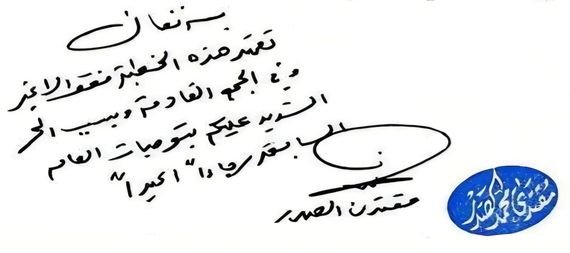 بسمه تعالى
تعتمد هذه الخطبة فقط لا غير
وفي الجمع القادمة وبسبب الحر
الشديد عليكم بتوصيات العام
السابق رجاءاً اكيداً
مقتدى الصدر
مقتدى محمد الصدر